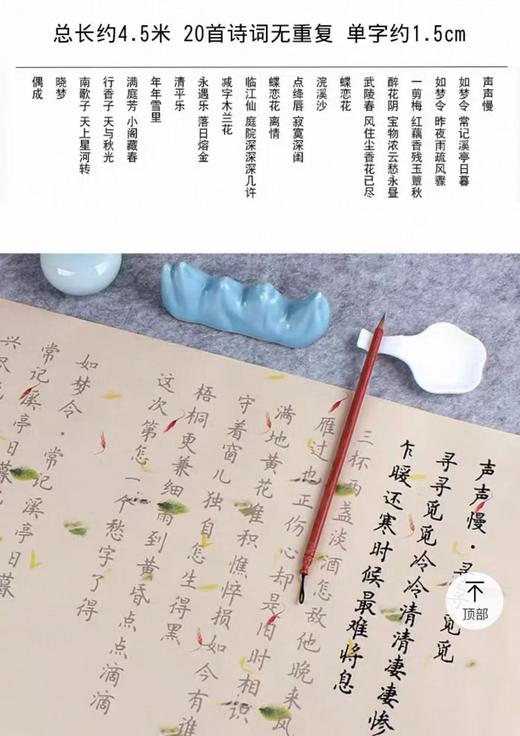 总长约4.5米 20首诗词无重复 单字约1.5cm
声声慢
如梦令 常记溪亭日暮
如梦令 昨夜雨疏风骤
一剪梅 红藕香残玉簟秋
醉花阴 宝物浓云愁永昼
武陵春 风住尘香花已尽
蝶恋花
浣溪沙
点绛唇 寂寞深闺
蝶恋花 离情
临江仙 庭院深深深几许
减字木兰花
永遇乐 落日熔金
清平乐
年年雪里
满庭芳 小阁藏春
行香子 天与秋光
南歌子 天上星河转
晓梦
偶成
声声慢·寻寻觅觅
寻寻觅觅冷冷清清凄凄惨
乍暖还寒时候最难将息
三杯两盏淡酒怎敌他晚来风
雁过也正伤心却是旧时相识
满地黄花堆积憔悴损如今有谁
守着窗儿独自怎生得黑
梧桐更兼细雨到黄昏点点滴滴
这次第怎一个愁字了得
如梦令·常记溪亭日暮
常记溪亭日暮
兴尽
顶部